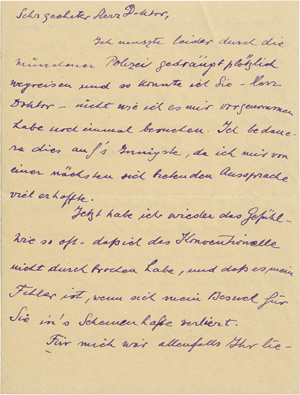 Sehr geehrter Herr Doktor,
Ich musste leider durch die
münchener Polizei gedrängt plötzlich
wegreisen und so konnte ich Sie – Herr
Doktor – nicht wie ich es mir vorgenommen
habe noch einmal besuchen. Ich bedaue-
re dies auf's Innigste, da ich mir von
einer nächsten sich bietenden Aussprache
viel erhoffte.
Jetzt habe ich wieder das Gefühl –
wie so oft – daß ich das Konventionelle
nicht durchbrochen habe, und daß es mein
Fehler ist, wenn sich mein Besuch für
Sie in's Schemenhafte verliert.
Für mich war allenfalls Ihr lie-